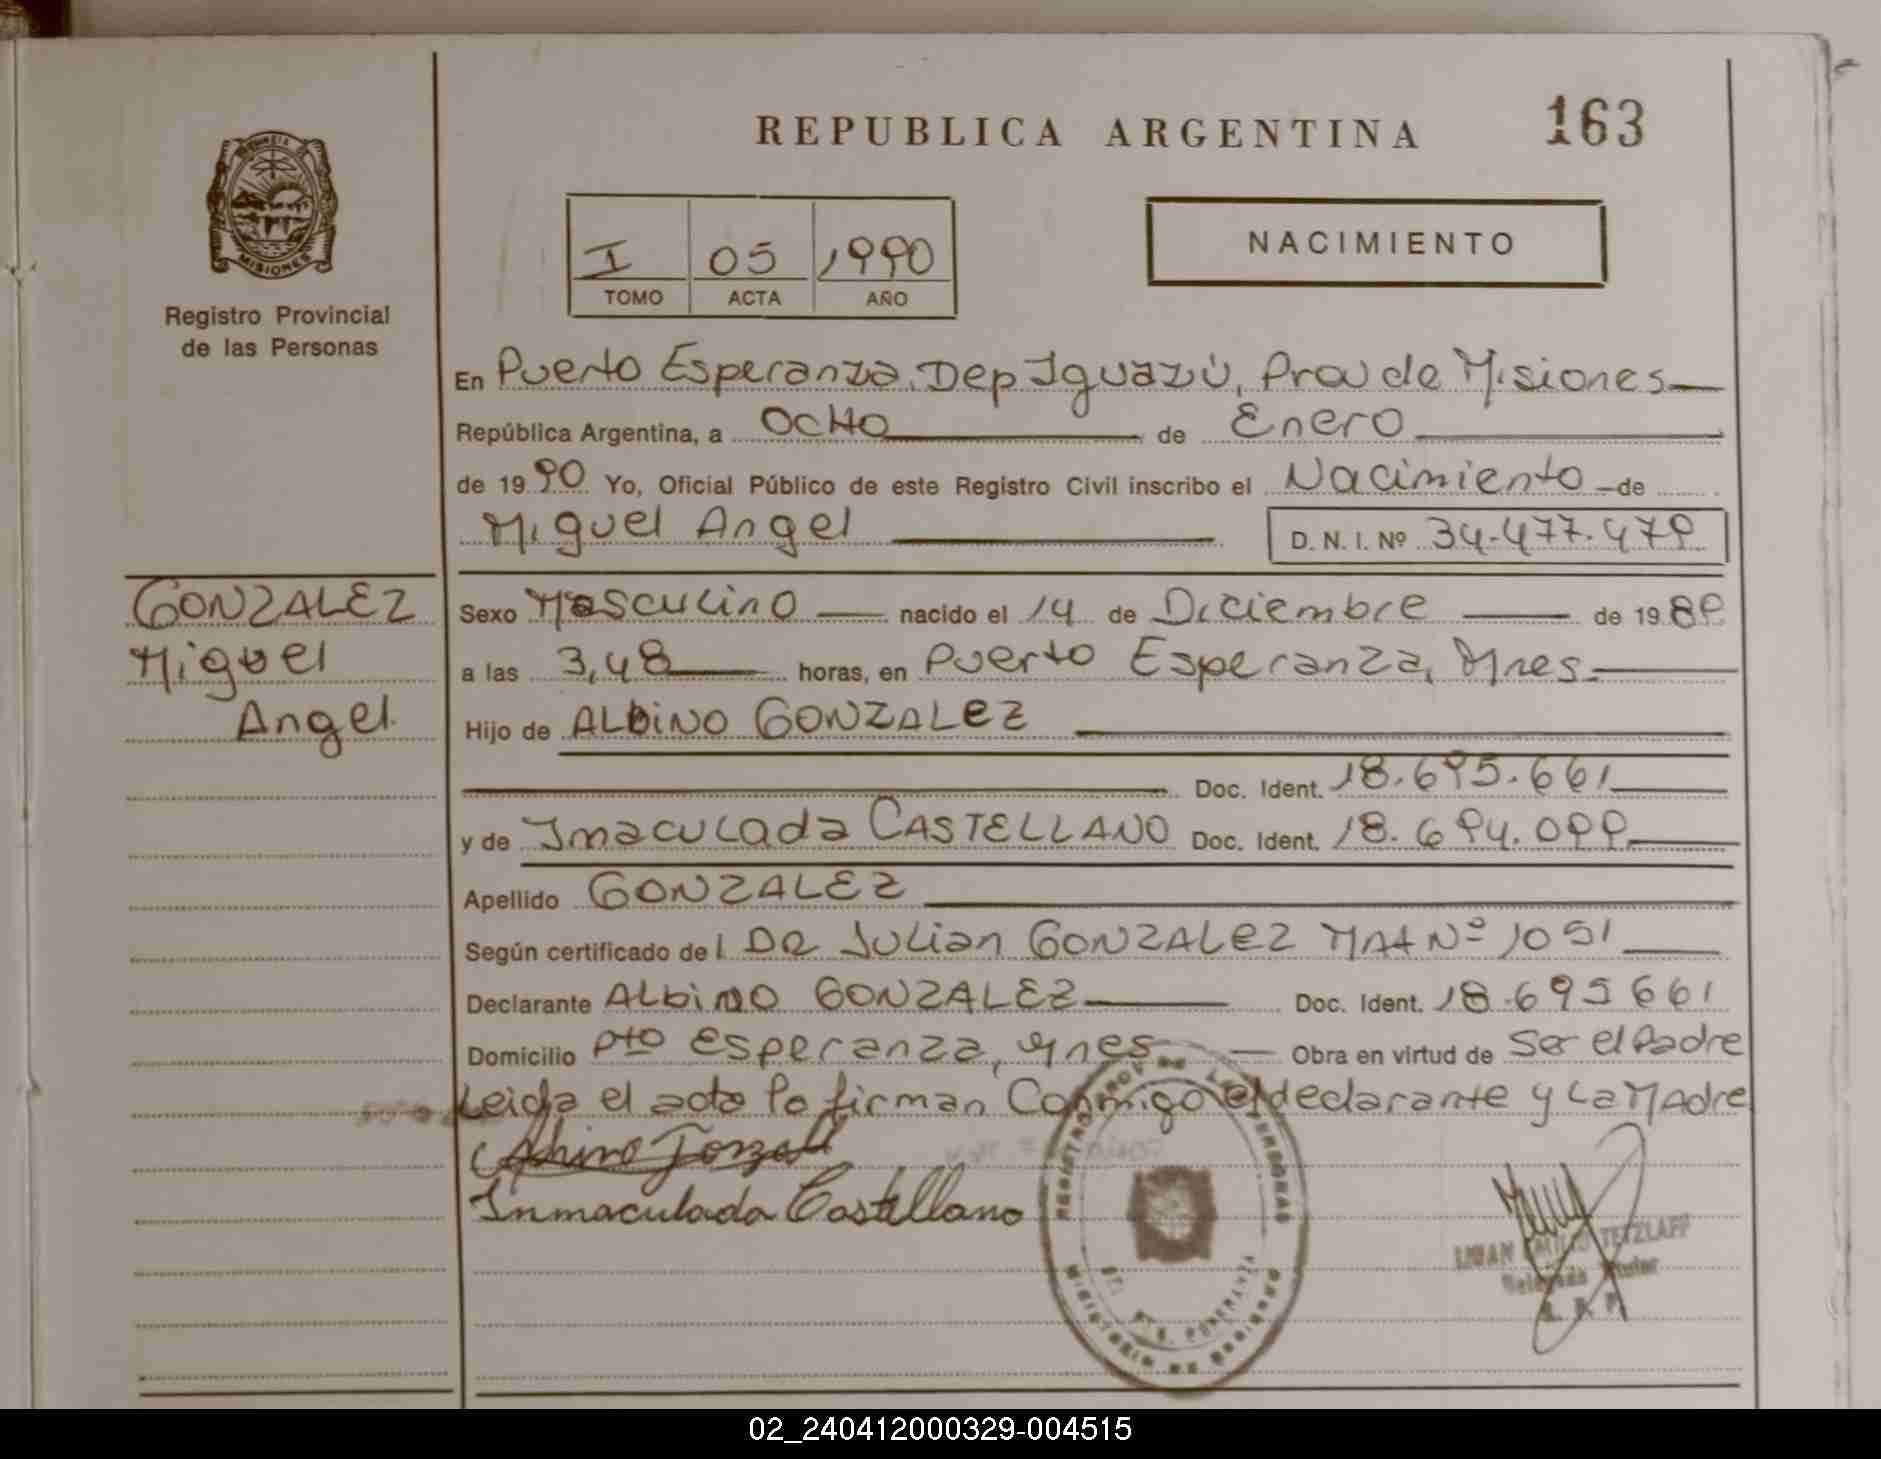 REPUBLICA ARGENTINA
163
MISIONES
Registro Provincial
de las Personas
I 05 1990
TOMO ACTA AÑO
NACIMIENTO
En Puerto Esperanza, Dep Iguazú, Prov de Misiones
República Argentina, a Ocho de Enero
de 1990 Yo, Oficial Público de este Registro Civil inscribo el Nacimiento de
Miguel Angel D. N. I. Nº 34.477.479
GONZALEZ
Miguel
Angel
Sexo Masculino nacido el 14 de Diciembre de 1989
a las 3,48 horas, en Puerto Esperanza, Mnes
Hijo de ALbiNO GONZALEZ
Doc. Ident. 18.695.661
y de Imaculada CASTELLANO Doc. Ident. 18.694.099
Apellido GONZALEZ
Según certificado de l DR Julian GONZALEZ MAt Nº 1051
Declarante ALbiNO GONZALEZ Doc. Ident. 18.695661
Domicilio Pto Esperanza, Mnes Obra en virtud de Ser el Padre
Leida el acta la firman Conmigo el declarante y La MAdre
Inmaculada Castellano
REGISTRO DE LAS PERSONAS
MINISTERIO DE GOBIERNO
TETZLAFF
Titular
R. P. P.
02_240412000329-004515